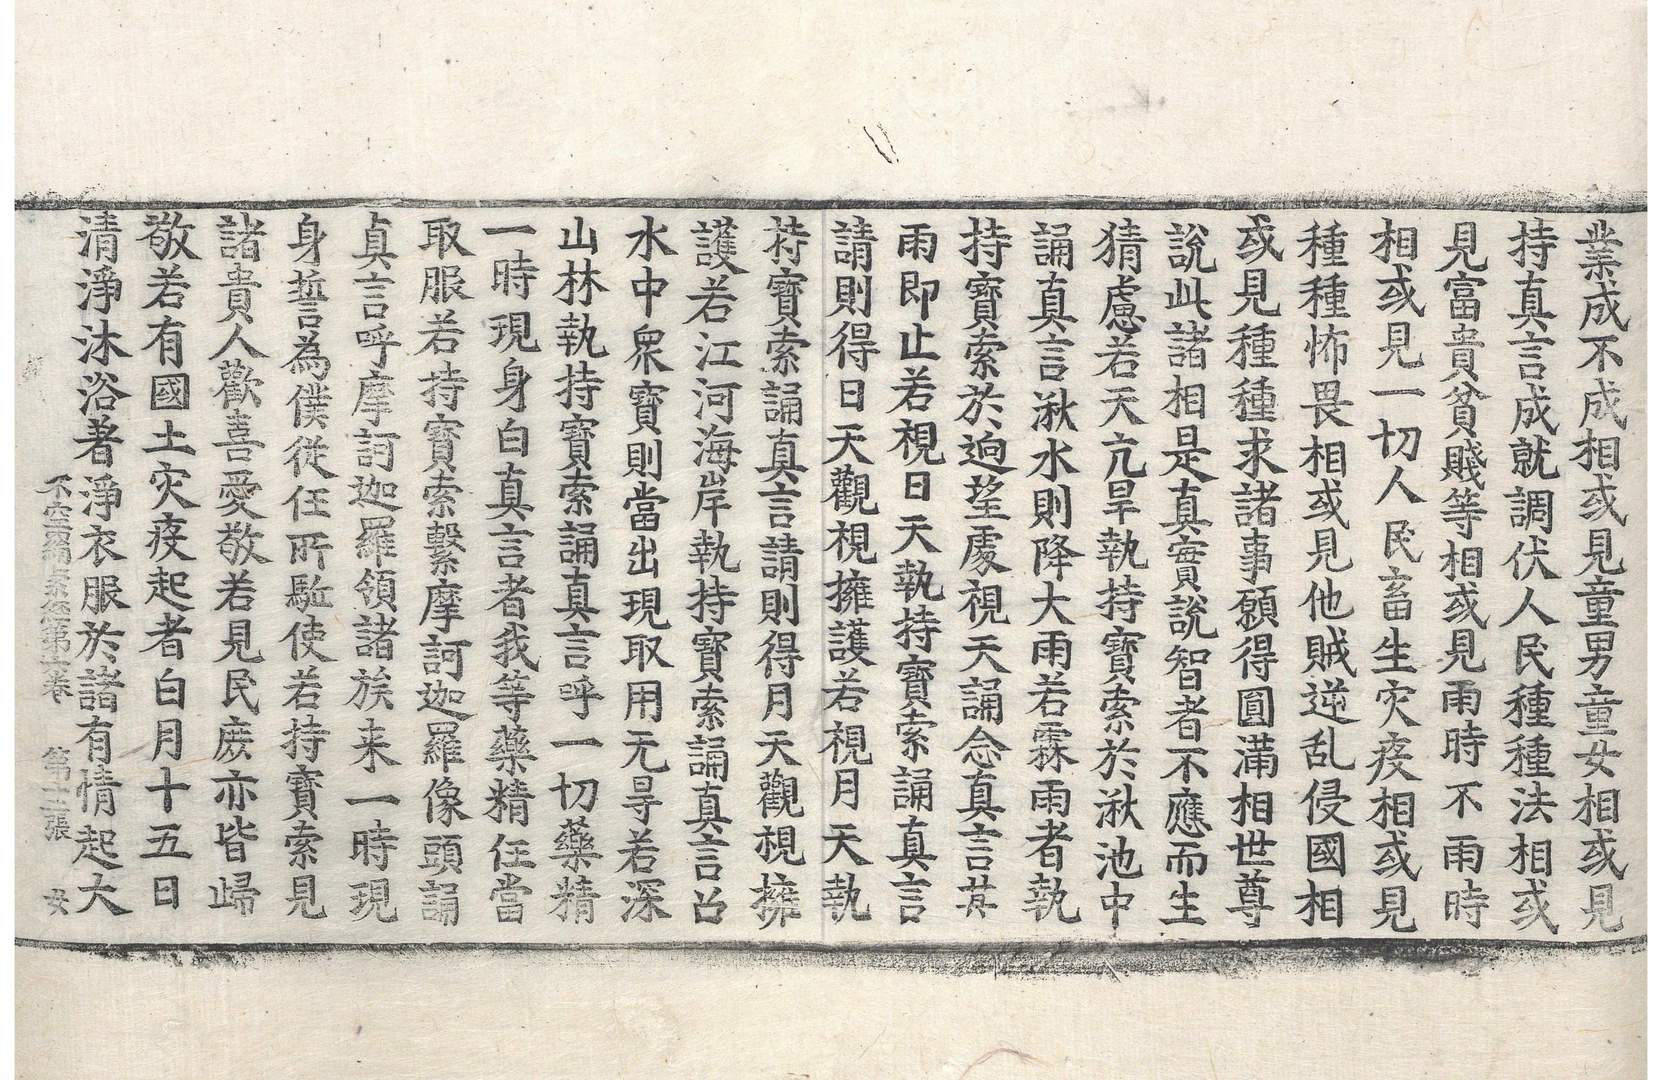 業成不成相或見童男童女相或見
持真言成就調伏人民種種法相或
見富貴貧賤等相或見雨時不雨時
相或見一切人民畜生灾疫相或見
種種怖畏相或見他賊逆乱侵國相
或見種種求諸事願得圓滿相世尊
說此諸相是真實說智者不應而生
猜慮若天亢旱執持寶索於湫池中
誦真言湫水則降大雨若霖雨者執
持寶索於逈望處視天誦念真言其
雨即止若視日天執持寶索誦真言
請則得日天觀視擁護若視月天執
持寶索誦真言請則得月天觀視擁
護若江河海岸執持寶索誦真言召
水中眾寶則當出現取用无㝵若深
山林執持寶索誦真言呼一切藥精
一時現身白真言者我等藥精任當
取服若持寶索繫摩訶迦羅像頭誦
真言呼摩訶迦羅領諸族来一時現
身誓為僕從任所駈使若持寶索見
諸貴人歡喜愛敬若見民庶亦皆歸
敬若有國土灾疫起者白月十五日
清淨沐浴著淨衣服於諸有情起大
不空羂索經第六卷 第十二張 女